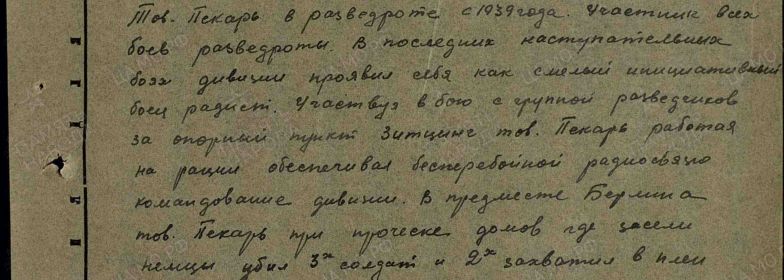 Тов. Пекарь в разведроте с 1939 года. Участник всех
боев разведроты. В последних наступательных
боях дивизии проявил себя как смелый инициативный
боец радист. Участвуя в бою с группой разведчиков
за опорный пункт Зитцинг тов. Пекарь работая
на рации обеспечивал бесперебойной радиосвязью
командование дивизии. В предместье Берлина
тов. Пекарь при проческе домов где засели
немцы убил 3х солдат и 2х захватил в плен